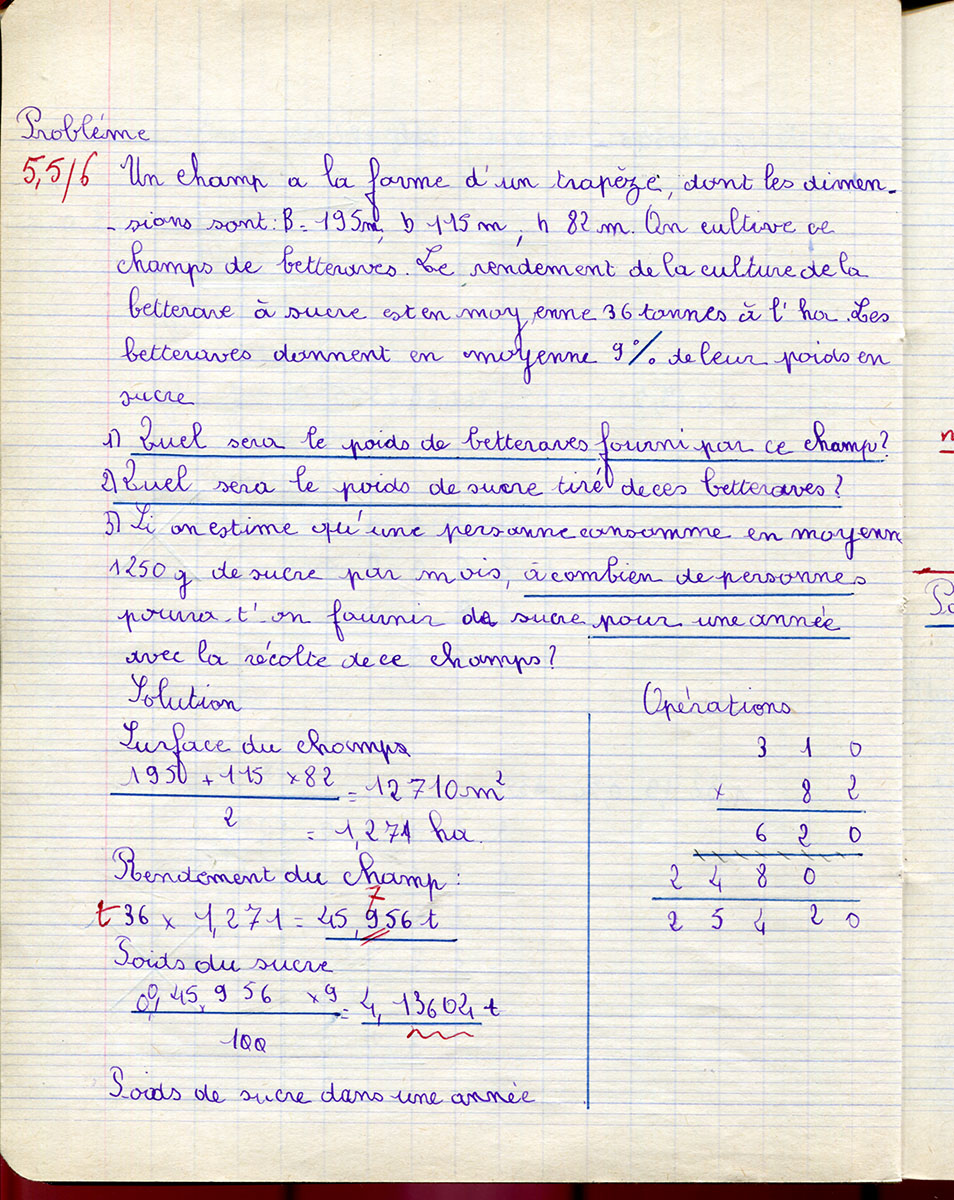 Probléme
5,5/6 Un champ a la forme d'un trapèze, dont les dimen-
-sions sont: B = 195m, b 115 m, h 82 m. On cultive ce
champs de betteraves. Le rendement de la culture de la
betterave à sucre est en moyenne 36 tonnes à l'ha. Les
betteraves donnent en moyenne 9% de leur poids en
sucre
1) Quel sera le poids de betteraves fourni par ce champ?
2) Quel sera le poids de sucre tiré de ces betteraves?
3) Si on estime qu'une personne consomme en moyenn
1250 g de sucre par mois, à combien de personnes
pourra-t'-on fournir de sucre pour une année
avec la récolte de ce champs?
Solution
Surface du champs
1950 + 115 × 82 = 12710 m²
2
= 1,271 ha.
Rendement du champ:
7
t 36 × 1,271 = 45,956 t
Poids du sucre
45,956 × 9 = 4,13604 t
100
Poids de sucre dans une année
Opérations
3 1 0
× 8 2
6 2 0
2 4 8 0
2 5 4 2 0